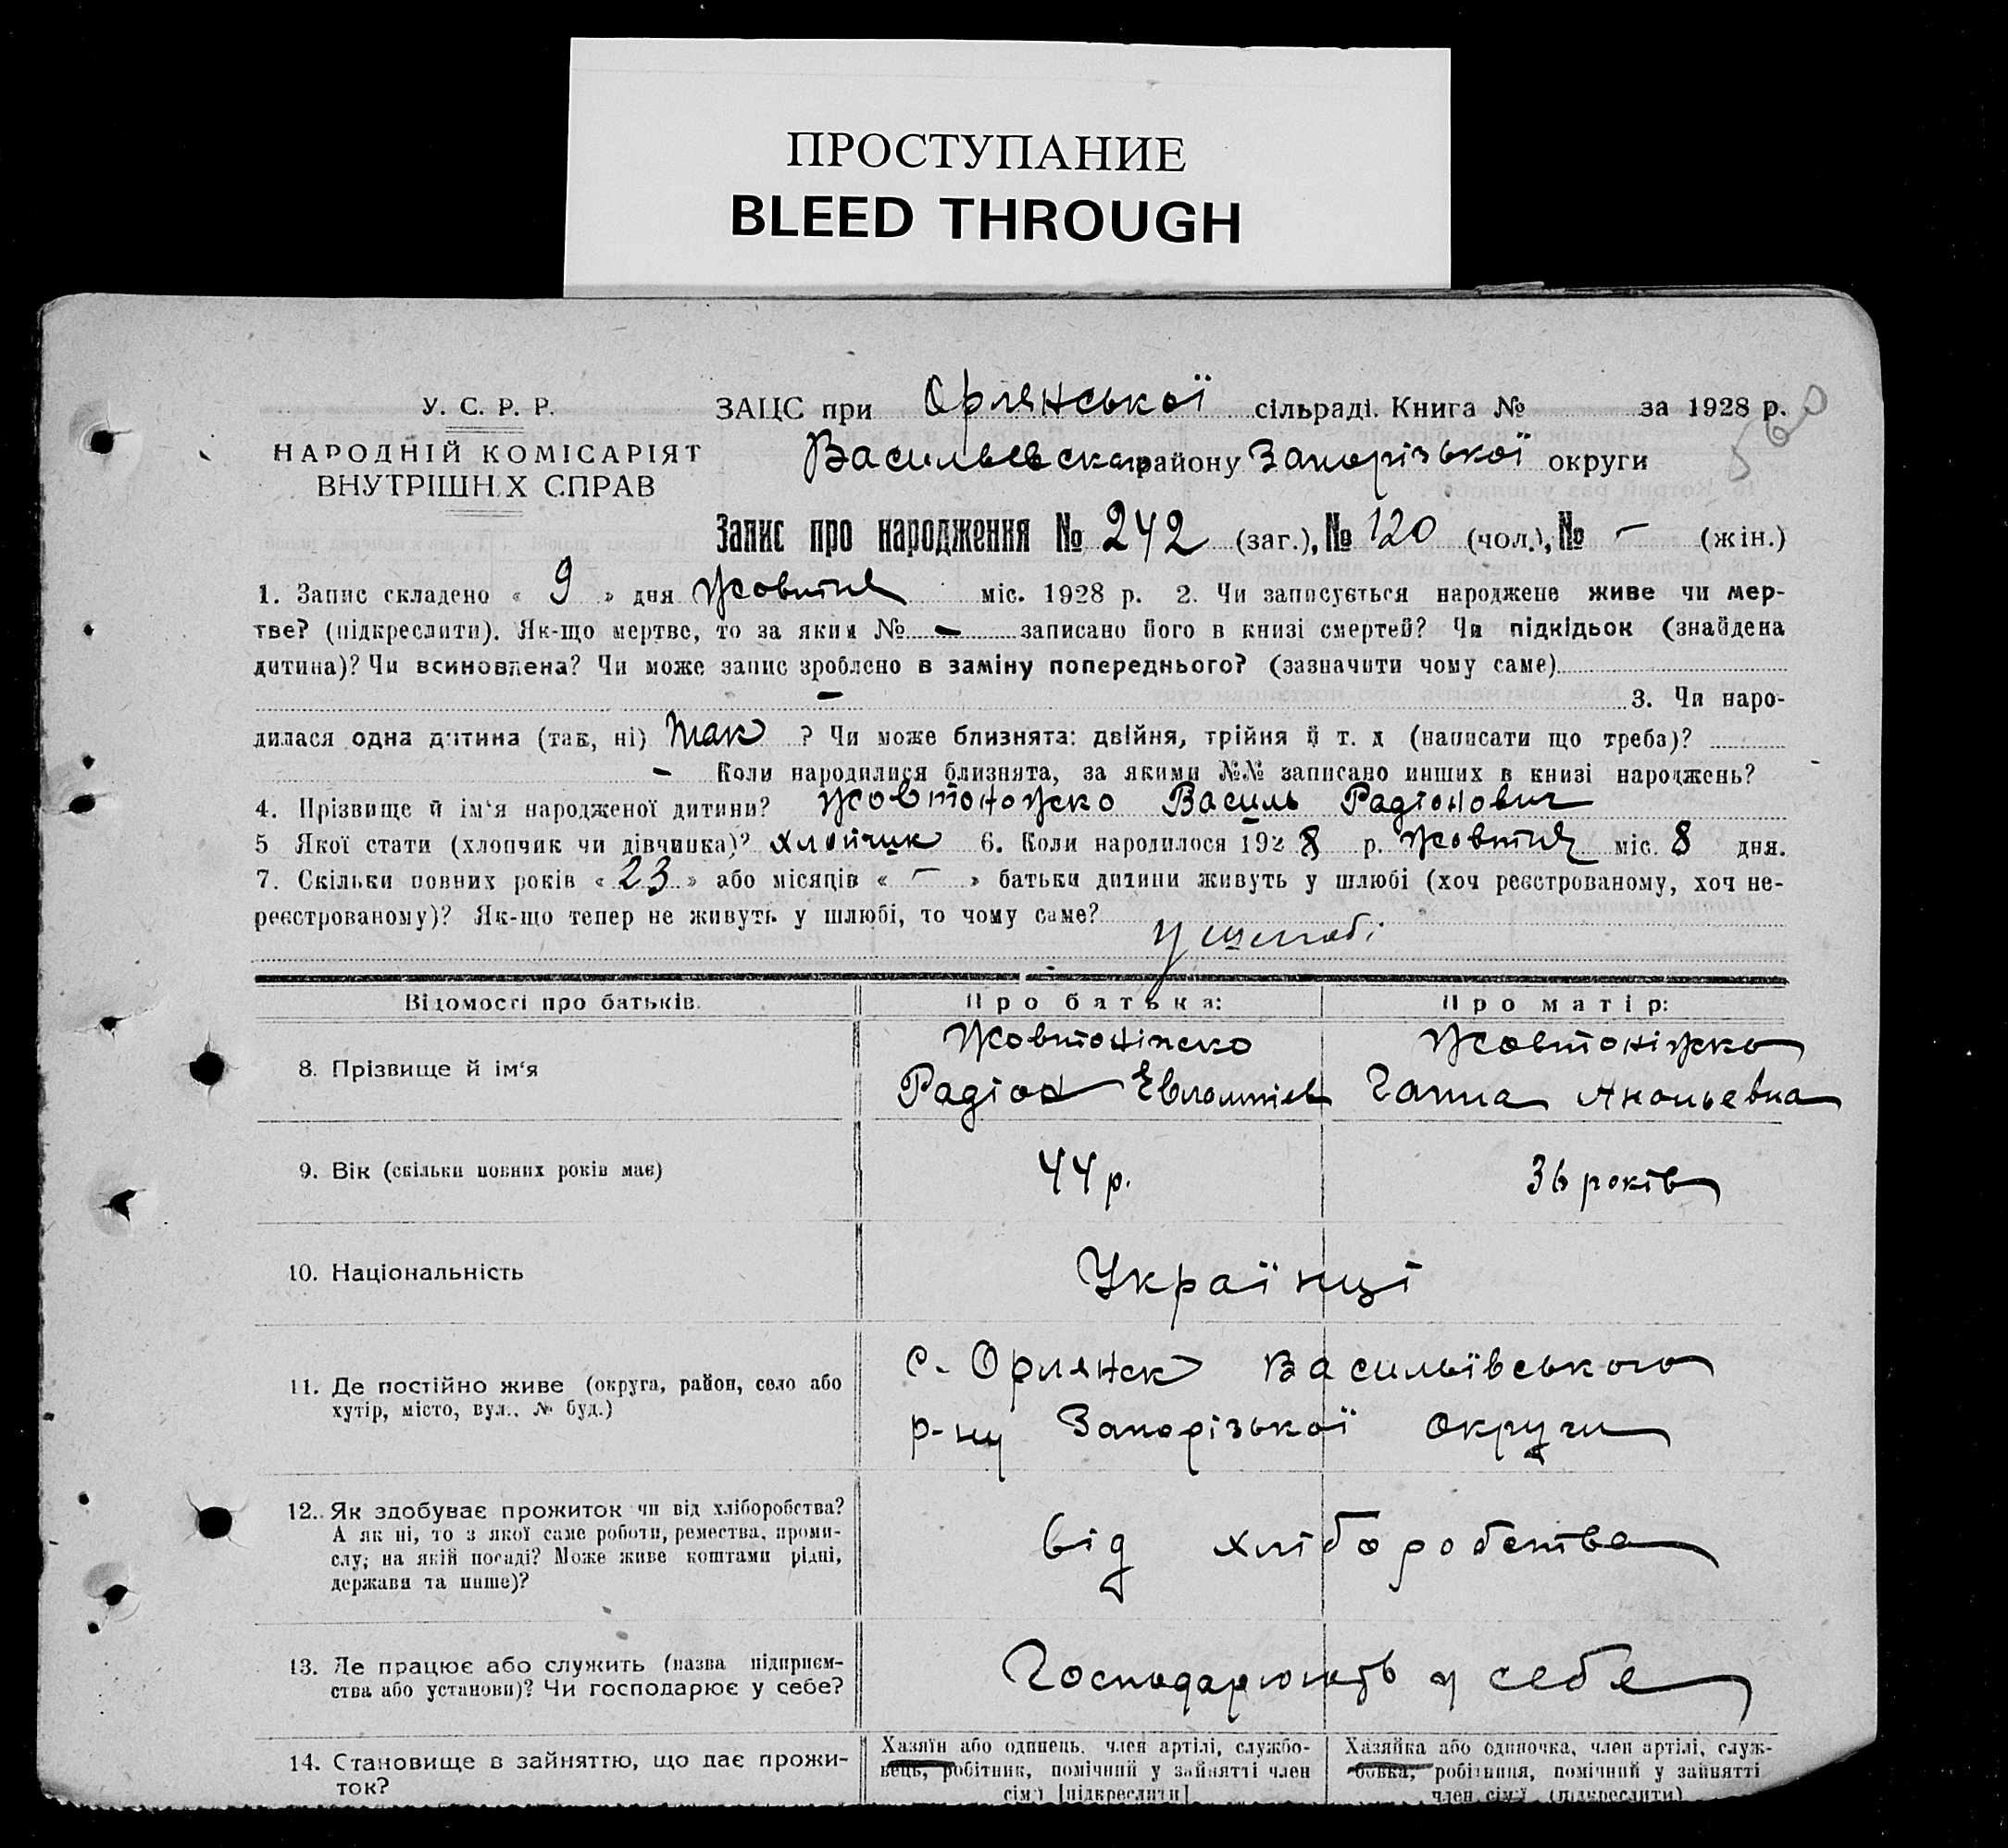 ПРОСТУПАНИЕ
BLEED THROUGH
У. С. Р. Р.
НАРОДНІЙ КОМІСАРІЯТ
ВНУТРІШН.Х СПРАВ
ЗАЦС при Орлянської сільраді. Книга № за 1928 р.
560
Васильевскаго району Запорізької округи
Запис про народження № 242 (заг.), № 120 (чол.), № – (жін.)
1. Запис складено « 9 » дня Жовтня міс. 1928 р. 2. Чи записується народжене живе чи мер-
тве? (підкреслити). Як-що мертве, то за яким № – записано його в книзі смертей? Чи підкідьок (знайдена
дитина)? Чи всиновлена? Чи може запис зроблено в заміну попереднього? (зазначити чому саме)
– 3. Чи наро-
дилася одна дитина (так, ні) Так ? Чи може близнята: двійня, трійня й т. д (написати що треба)?
– Коли народилися близнята, за якими №№ записано инших в книзі народжень?
4. Прізвище й ім'я народженої дитини? Жовтоножко Василь Радіонович
5 Якої стати (хлопчик чи дівчинка)? хлопчик 6. Коли народилося 1928 р. Жовтня міс. 8 дня.
7. Скільки повних років « 23 » або місяців « – » батьки дитини живуть у шлюбі (хоч реєстрованому, хоч не-
реєстрованому)? Як-що тепер не живуть у шлюбі, то чому саме?
У шлюбі
Відомості про батьків. Про батька: Про матір:
8. Прізвище й ім'я
Жовтоніжко Жовтоніжко
Радіон Евломпіев Ганна Ананьевна
9. Вік (скільки повних років має) 44 р. 36 років
10. Національність Українці
11. Де постійно живе (округа, район, село або
хутір, місто, вул., № буд.)
с. Орлянск Васильївського
р-ну Запорізької округи
12. Як здобуває прожиток чи від хліборобства?
А як ні, то з якої саме роботи, ремества, проми-
слу; на якій посаді? Може живе коштами рідні,
держави та инше)?
від хліборобства
13. Де працює або служить (назва підприєм-
ства або установи)? Чи господарює у себе?
Господарюють у себе
14. Становище в зайняттю, що дає прожи-
ток?
Хазяїн або одинець, член артілі, службо-
вець, робітник, помічний у зайнятті член
сім'ї [підкреслити]
Хазяйка або одиночка, член артілі, служ-
бовка, робітниця, помічний у зайнятті
член сім'ї (підкреслити)